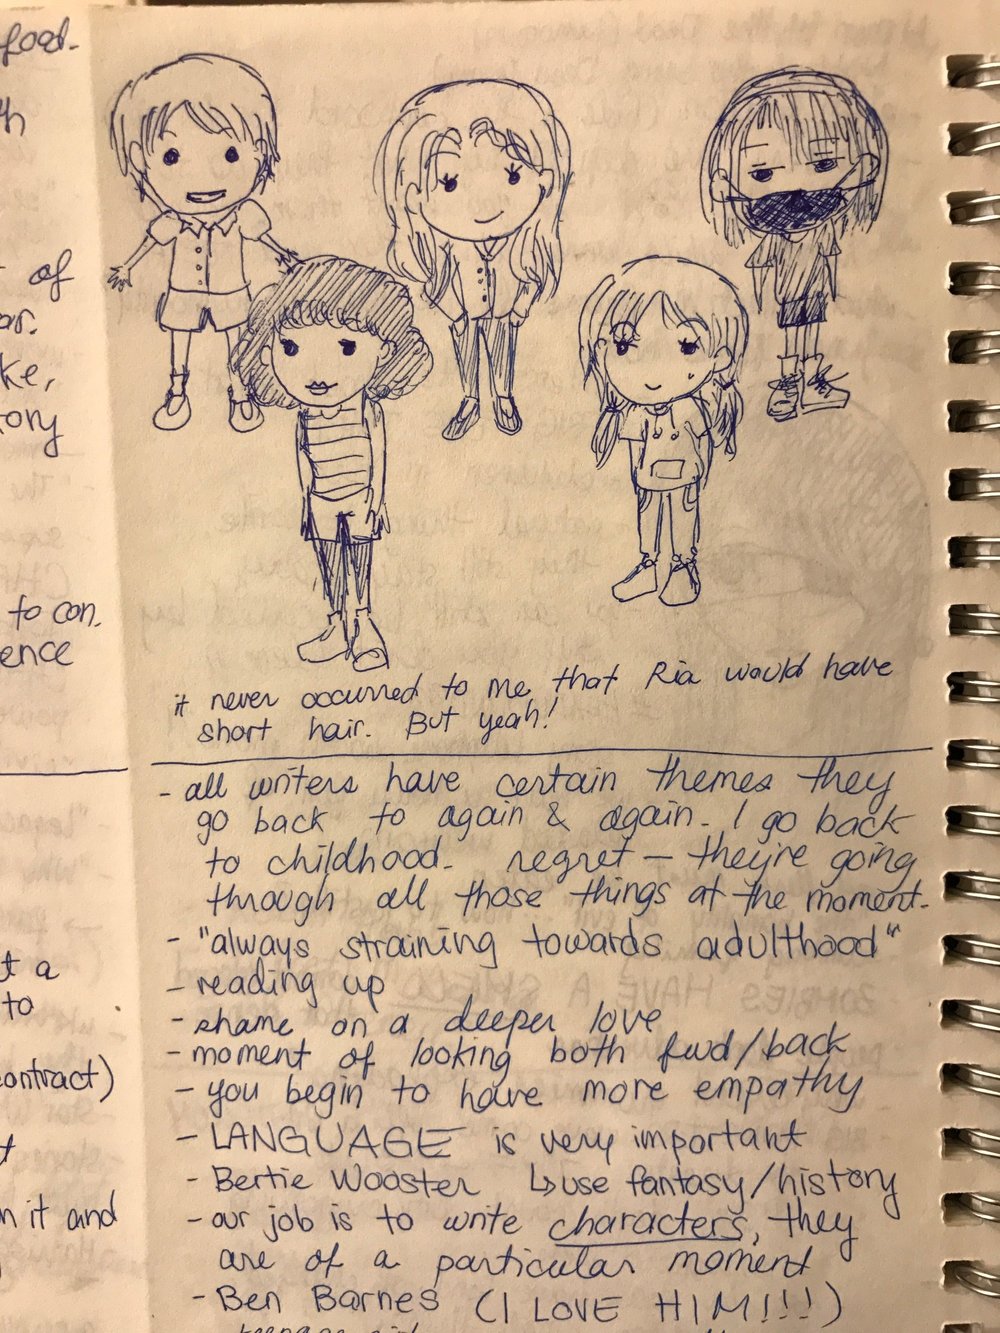 food.
of
ke,
ory
to con.
ence
t a
to
contract)
n it and
it never occurred to me that Ria would have
short hair. But yeah!
- all writers have certain themes they
go back to again & again. I go back
to childhood. regret — they're going
through all those things at the moment.
- "always straining towards adulthood"
- reading up
- shame on a deeper love
- moment of looking both fwd/back
- you begin to have more empathy
- LANGUAGE is very important
- Bertie Wooster ↳ use fantasy/history
- our job is to write characters, they
are of a particular moment
- Ben Barnes (I LOVE HIM!!!)